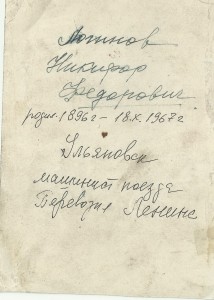 Логинов
Никифор
Федорович
родил. 1896 г – 18.X.1967 г
Ульяновск
машинист поезда
Перевозил Ленина